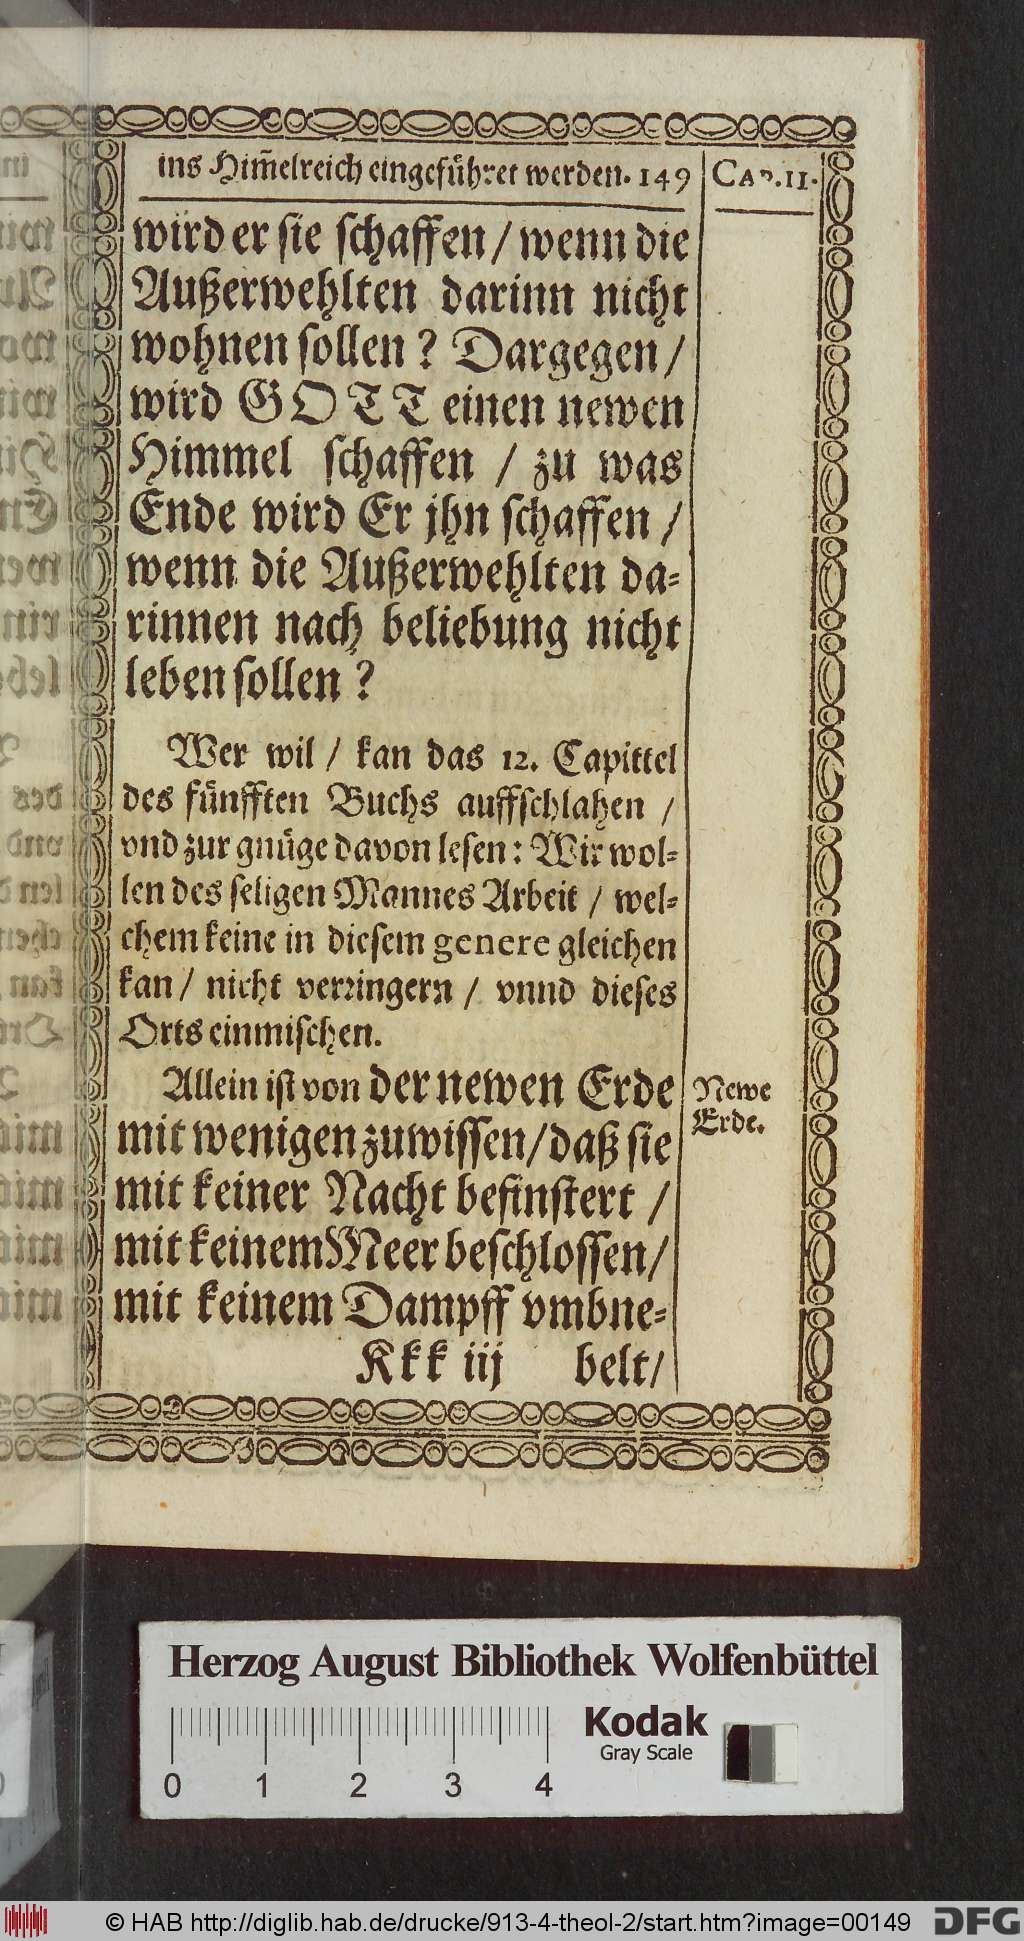 ins Him̃elreich eingefuͤhret werden. 149
CAP. II.
wird er sie schaffen / wenn die
Außerwehlten darinn nicht
wohnen sollen? Dargegen /
wird GOTT einen newen
Himmel schaffen / zu was
Ende wird Er jhn schaffen /
wenn die Außerwehlten da⸗
rinnen nach beliebung nicht
leben sollen?
Wer wil / kan das 12. Capittel
des fuͤnfften Buchs auffschlahen /
vnd zur gnuͤge davon lesen: Wir wol⸗
len des seligen Mannes Arbeit / wel⸗
chem keine in diesem genere gleichen
kan / nicht verringern / vnnd dieses
Orts einmischen.
Allein ist von der newen Erde
Newe
Erde.
mit wenigen zuwissen / daß sie
mit keiner Nacht befinstert /
mit keinem Meer beschlossen /
mit keinem Dampff vmbne⸗
Kkk iij belt /
Herzog August Bibliothek Wolfenbüttel
0 1 2 3 4
Kodak
Gray Scale
© HAB http://diglib.hab.de/drucke/913-4-theol-2/start.htm?image=00149
DFG